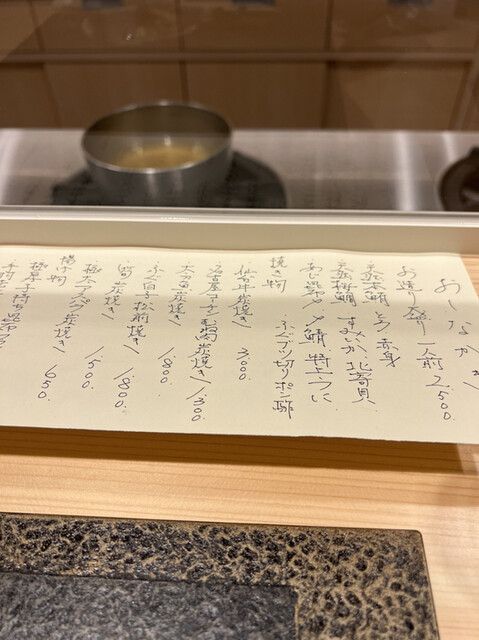 おしながき
お造り盛り 一人前 2,500.
天然本鮪 とろ 赤身
天然梅鯛 すみいか 北寄貝
あじ 昆布〆 〆鯖 特上うに
ふぐブツ切りポン酢
焼き物
仙台牛炭焼き 3,000.
名古屋コーチン もも肉炭焼き 1,300
太刀魚炭焼き 1,800.
ふぐ白子松前焼き 1,800.
筍炭焼き 1,500
極太アスパラ炭焼き 650.
揚げ物